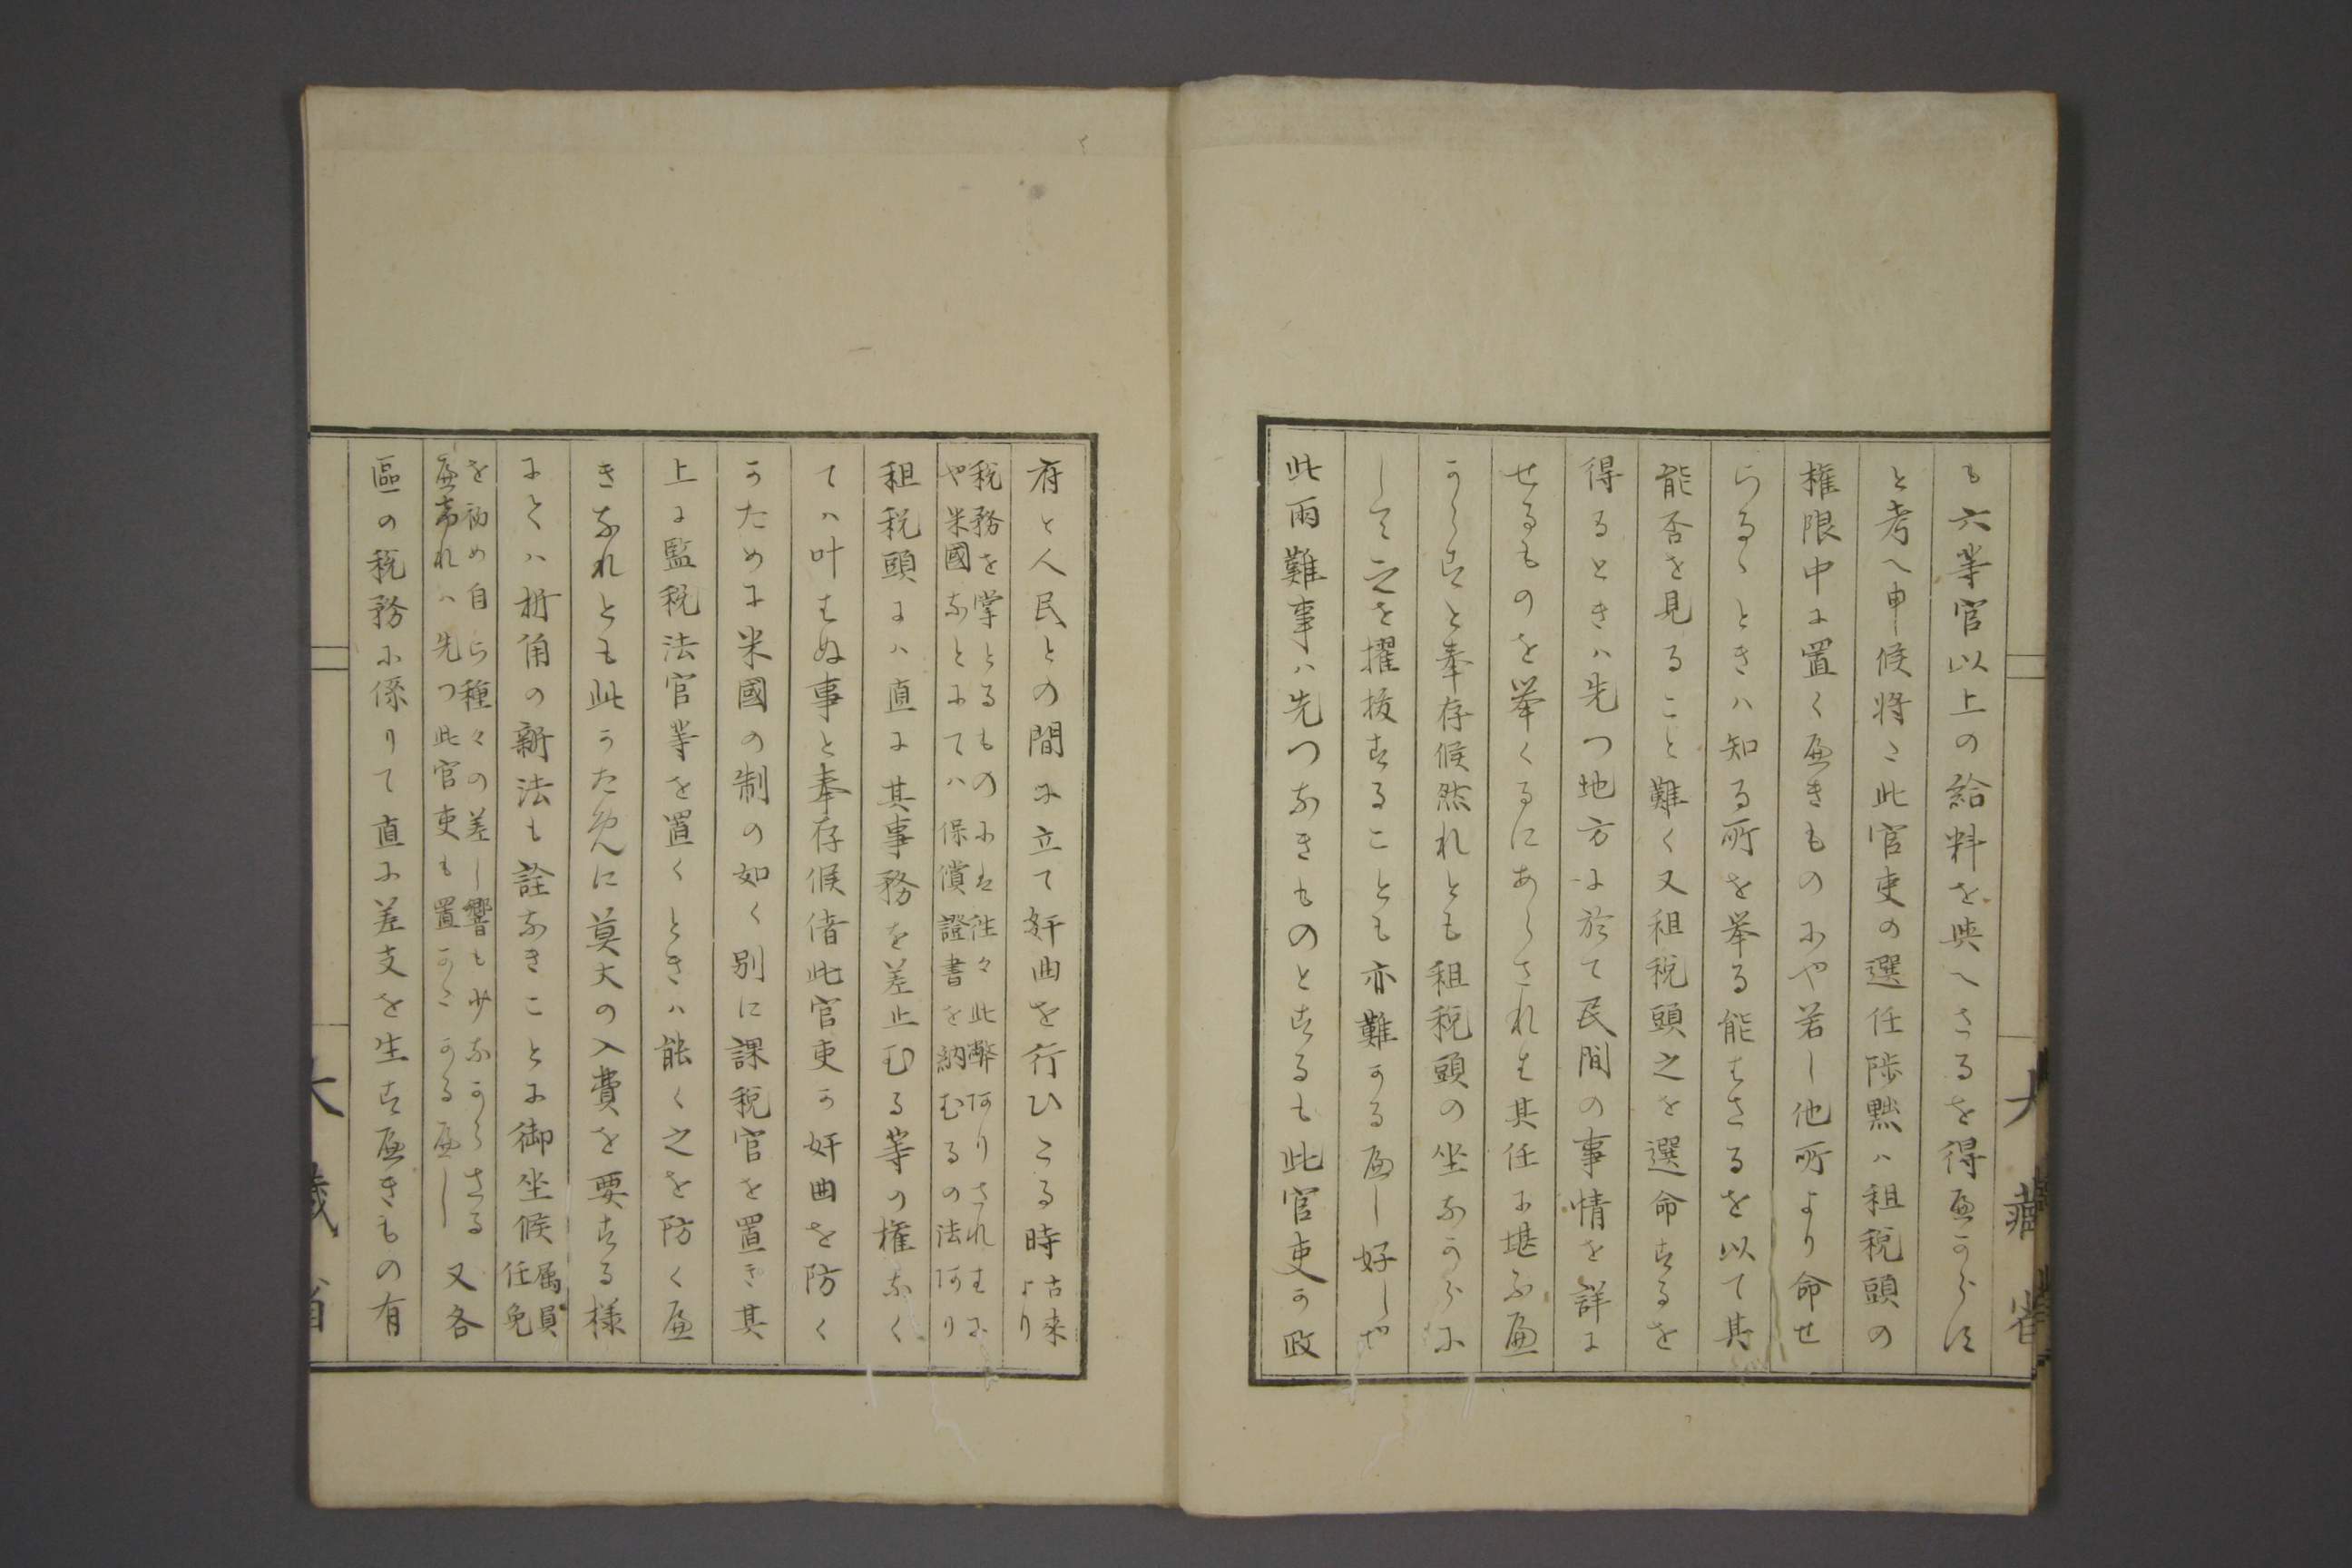 も六等官以上の給料を與へさるを得へからす
と考へ申候将又此官吏の選任陟黜ハ租税頭の
権限中に置くへきものにや若し他所より命せ
らるゝときハ知る所を挙る能はさるを以て其
能否を見ること難く又租税頭之を選命するを
得るときハ先つ地方に於て民間の事情を詳に
せるものを挙くるにあらされは其任に堪ふへ
からすと奉存候然れとも租税頭の坐なからに
して之を擢抜することも亦難かるへし好しや
此両難事ハ先つなきものとするも此官吏か政
大藏省
府と人民との間に立て奸曲を行ひたる時古来より
税務を掌とるものには往々此弊阿りされはに
や米國なとにてハ保償證書を納むるの法阿り
租税頭にハ直に其事務を差止むる等の権なく
てハ叶はぬ事と奉存候偖此官吏か奸曲を防く
かために米國の制の如く別に課税官を置き其
上に監税法官等を置くときハ能く之を防くへ
きなれとも此かために莫大の入費を要する様
にてハ折角の新法も詮なきことに御坐候属員任免
を初め自ら種々の差し響も少なからさる
へけれハ先つ此官吏も置かたかるへし又各
區の税務に係りて直に差支を生すへきもの有
大藏省